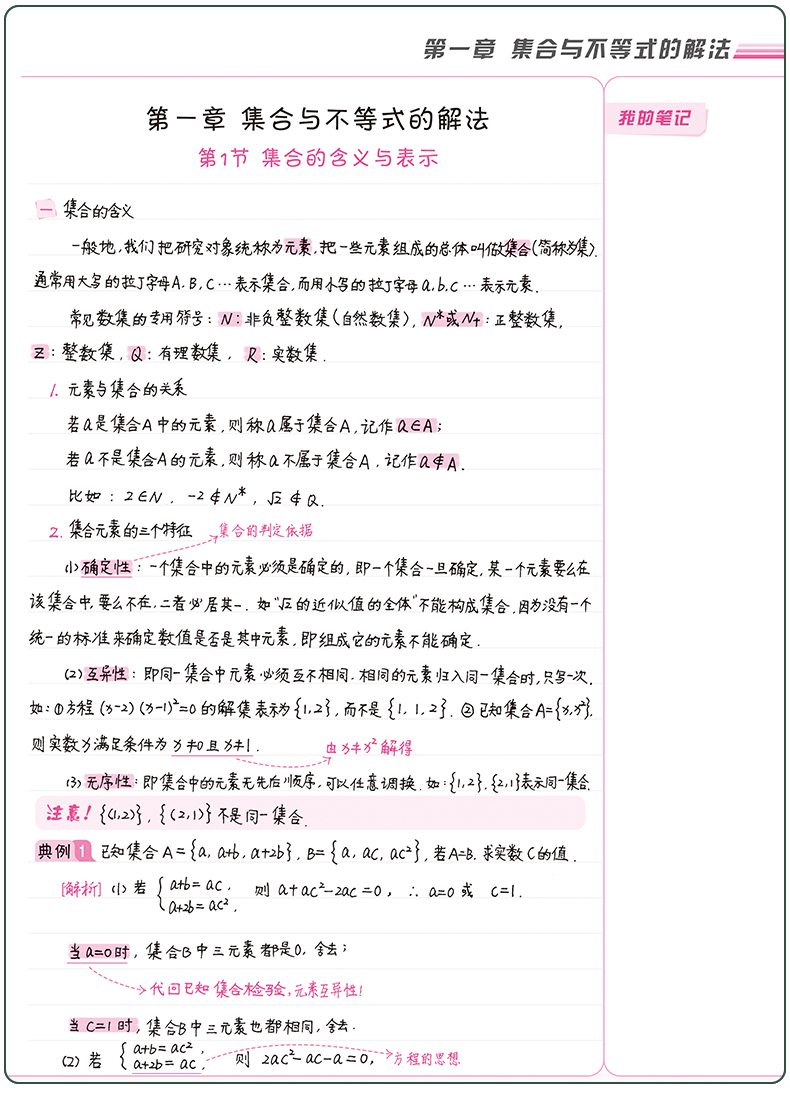 第一章 集合与不等式的解法
我的笔记
第一章 集合与不等式的解法
第1节 集合的含义与表示
一 集合的含义
一般地,我们把研究对象统称为元素,把一些元素组成的总体叫做集合(简称为集).
通常用大写的拉丁字母A,B,C…表示集合,而用小写的拉丁字母a,b,c…表示元素.
常见数集的专用符号:N:非负整数集(自然数集),N*或N+:正整数集,
Z:整数集,Q:有理数集,R:实数集.
1. 元素与集合的关系
若a是集合A中的元素,则称a属于集合A,记作a∈A;
若a不是集合A的元素,则称a不属于集合A,记作a∉A.
比如:2∈N,-2∉N*,√2∉Q.
2. 集合元素的三个特征 集合的判定依据
(1)确定性:一个集合中的元素必须是确定的,即一个集合一旦确定,某一个元素要么在
该集合中,要么不在,二者必居其一.如“√2的近似值的全体”不能构成集合,因为没有一个
统一的标准来确定数值是否是其中元素,即组成它的元素不能确定.
(2)互异性:即同一集合中元素必须互不相同.相同的元素归入同一集合时,只写一次.
如:①方程(x-2)(x-1)²=0的解集表示为{1,2},而不是{1,1,2}.②已知集合A={x,x²},
则实数x满足条件为x≠0且x≠1. 由x≠x²解得
(3)无序性:即集合中的元素无先后顺序,可以任意调换.如:{1,2},{2,1}表示同一集合.
注意!{(1,2)},{(2,1)}不是同一集合.
典例1 已知集合A={a,a+b,a+2b},B={a,ac,ac²},若A=B.求实数C的值.
[解析](1)若{a+b=ac, a+2b=ac². 则a+ac²-2ac=0,∴a=0或 c=1.
当a=0时,集合B中三元素都是0,舍去;
代回已知集合检验,元素互异性!
当C=1时,集合B中三元素也都相同,舍去.
(2)若{a+b=ac², a+2b=ac. 则 2ac²-ac-a=0, 方程的思想